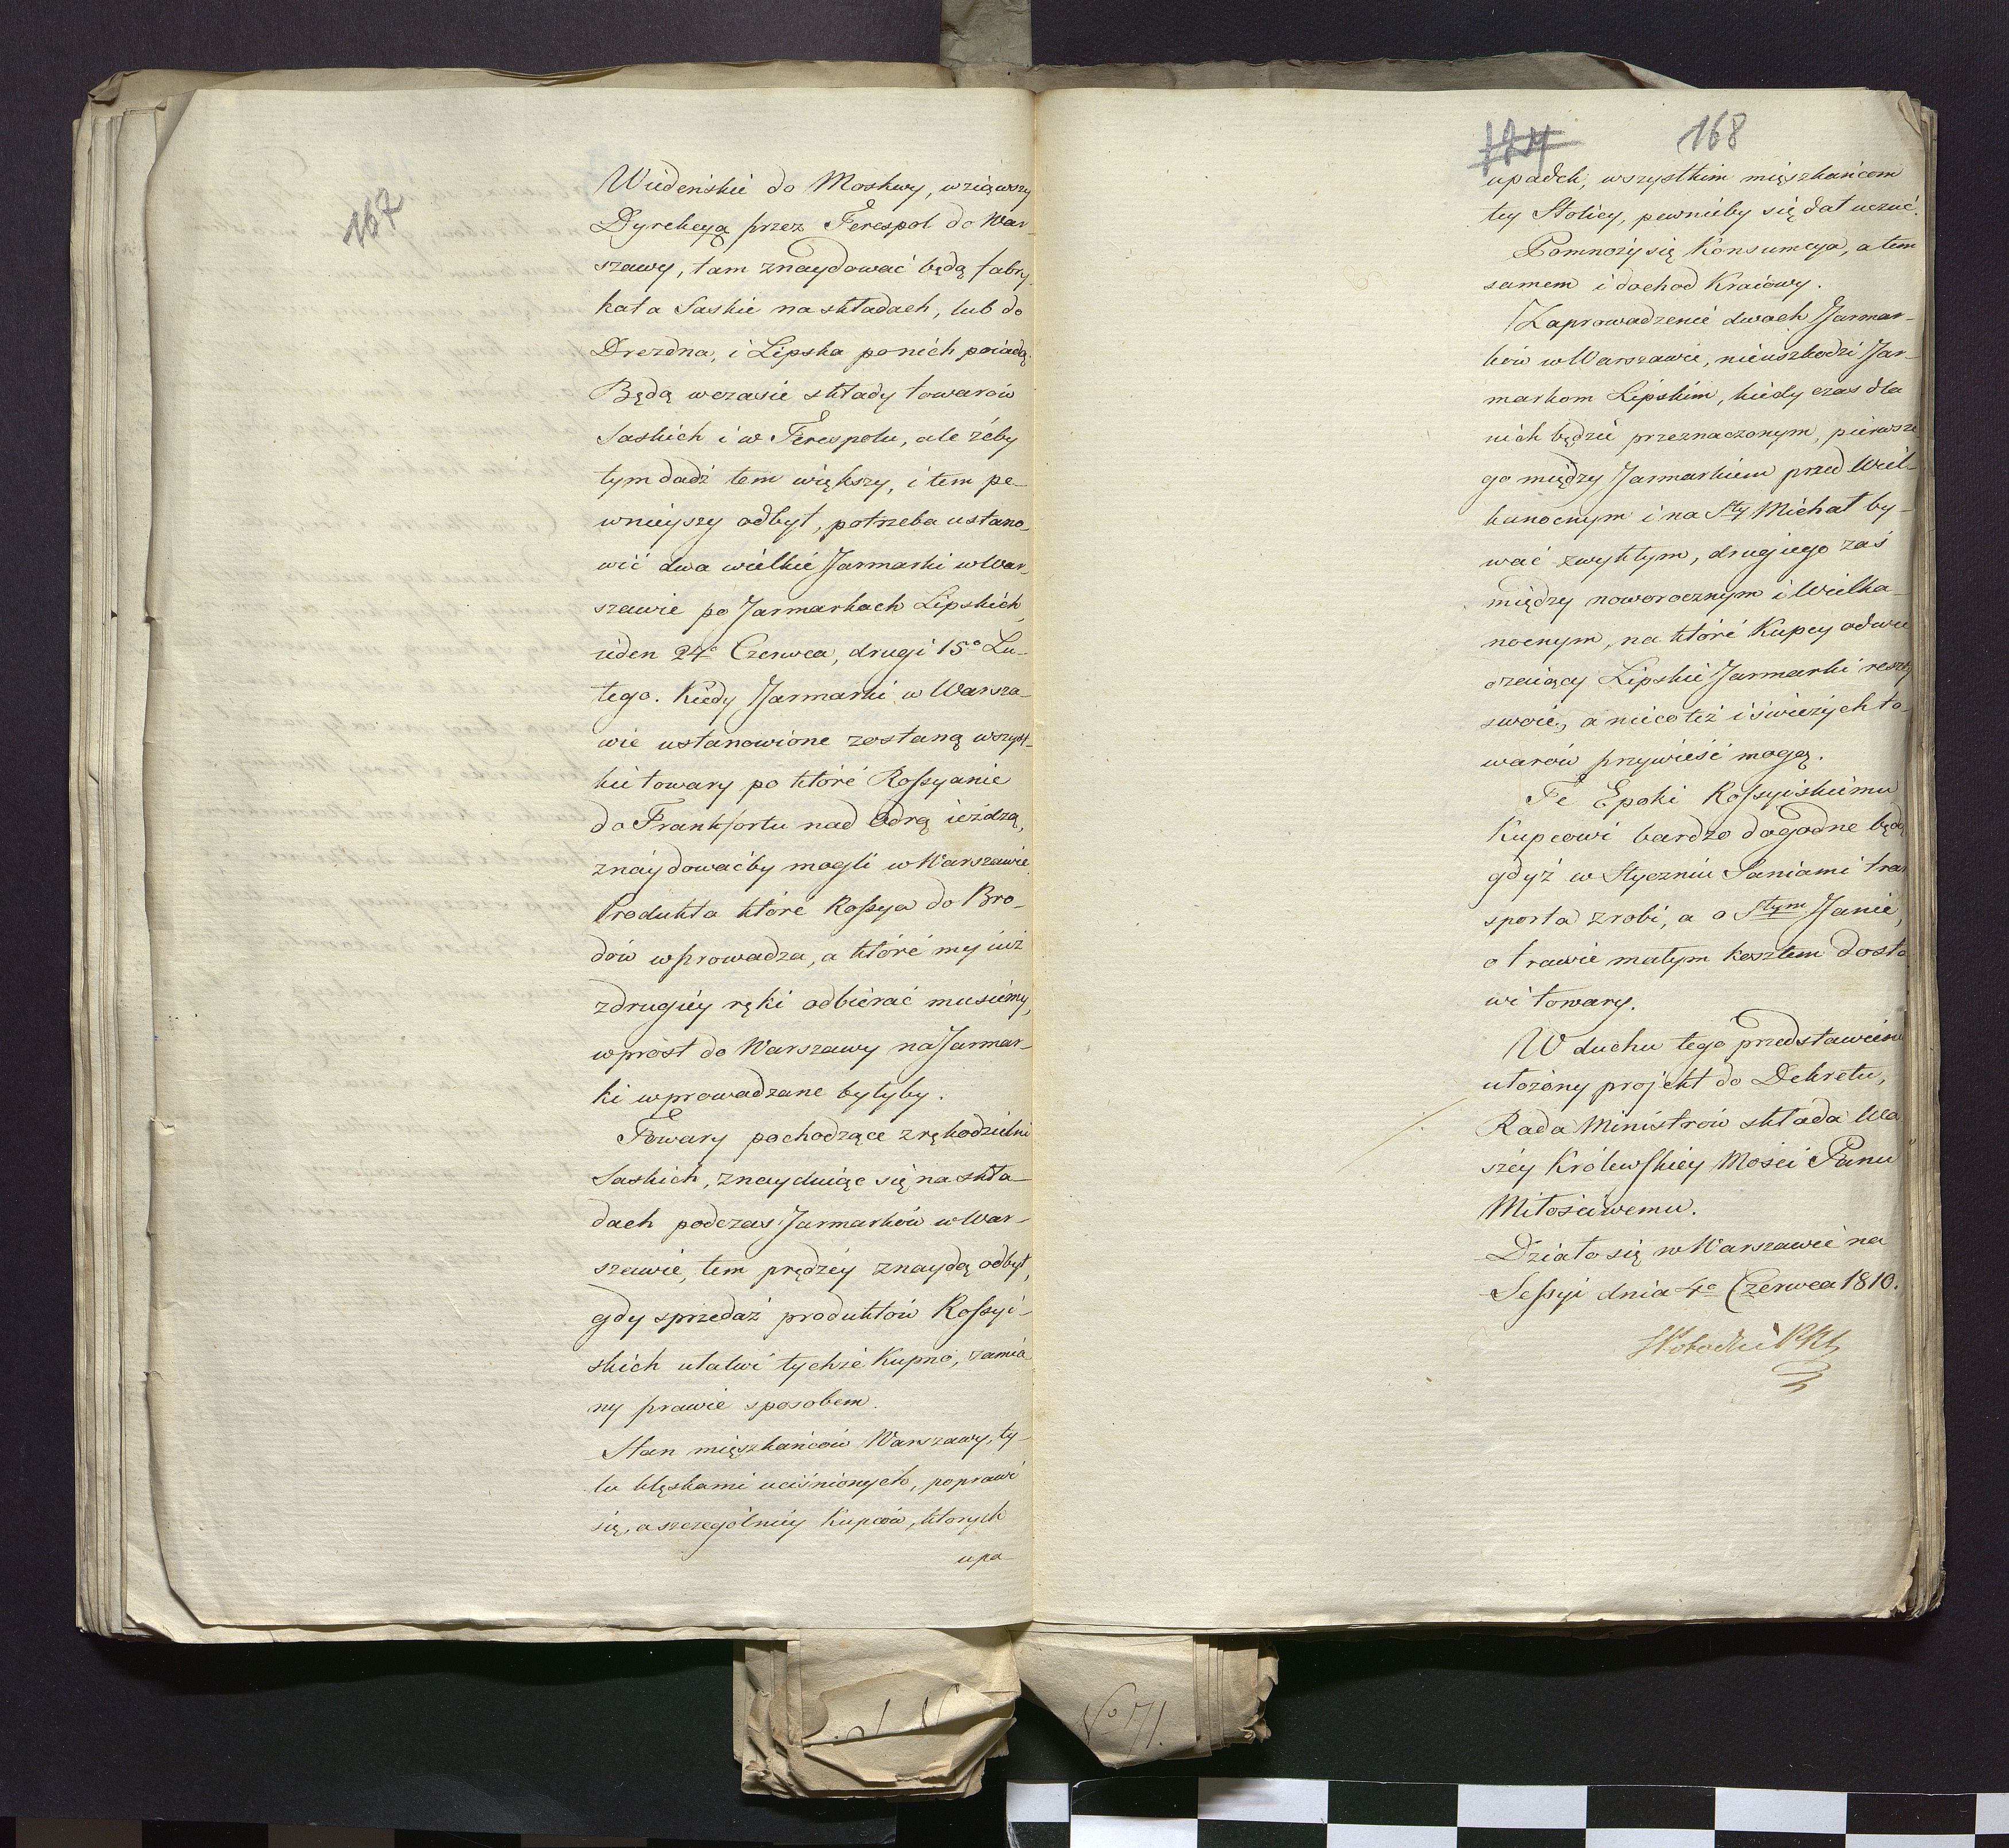 167
Wiedeńskie do Moskwy, wziąwszy
Dyrekcyą przez Terespol do War-
szawy, tam znaydować będą fabry-
kata Saskie na składach, lub do
Drezdna, i Lipska po nich poiadą.
Będą wczasie składy towarów
Saskich i w Terespolu, ale żeby
tym dadź tem większy, i tem pe-
wnieyszy odbyt, potrzeba ustano-
wić dwa wielkie Jarmarki w War-
szawie po Jarmarkach Lipskich,
ieden 24o Czerwca, drugi 15o Lu-
tego. Kiedy Jarmarki w Warsza-
wie ustanowione zostaną wszyst-
kie towary po które Rossyanie
do Frankfortu nad Odrą ieżdzą,
znaydowaćby mogli w Warszawie.
Produkta które Rossya do Bro-
dów wprowadza, a które my iuż
zdrugiéy ręki odbiérać musiémy,
wprost do Warszawy na Jarmar-
ki wprowadzane byłyby.
Towary pochodzące z rękodzielni
Saskich, znayduiąc się na skła-
dach podczas Jarmarków w War-
szawie, tem prędzéy znaydą odbyt,
gdy sprzedaż produktów Rossyi-
skich ułatwi tychże Kupno, zamia
ny prawie sposobem.
Stan mięszkańców Warszawy, ty-
lu klęskami uciśnionych, poprawi
się, a szczególniéy kupców, ktorych
upa-
168
upadek, wszystkim mięszkańcom
tey Stolicy, pewnieby się dał uczuć.
Pomnoży się Konsumcya, a tem
samem i dochod Kraiowy.
Zaprowadzenie dwóch Jarmar-
ków w Warszawie, nieuszkodzi Jar-
markom Lipskim, kiedy czas dla
nich będzie przeznaczonym, pierwsze
go między Jarmarkiem przed Wiel-
kanocnym i na Sty Michał by-
wać zwykłym, drugiego zaś
między noworocznym i Wielka-
nocnym, na które Kupcy odwie
dzaiący Lipskie Jarmarki resztę
swoię, a nieco też i świeżych to-
warów przywieść mogą.
Te Epoki Rossyiskiemu
Kupcowi bardzo dogodne będą
gdyż w Styczniu Saniami tran
sporta zrobi, a o Stym Janie,
o trawie małym kosztem dosta
wi towary.
W duchu tego przedstawienia
ułożony projekt do Dekretu,
Rada Ministrów składa Wa
széy Królewskiey Mości Panu
Miłościwemu.
Działo się w Warszawie na
Sessyi dnia 4o Czerwca 1810.
No 71.